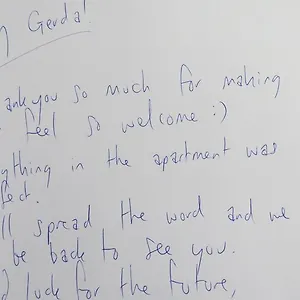 Gerda!
ank you so much for making
feel so welcome :)
ything in the apartment was
fect.
ll spread the word and we
be back to see you.
d luck for the future,